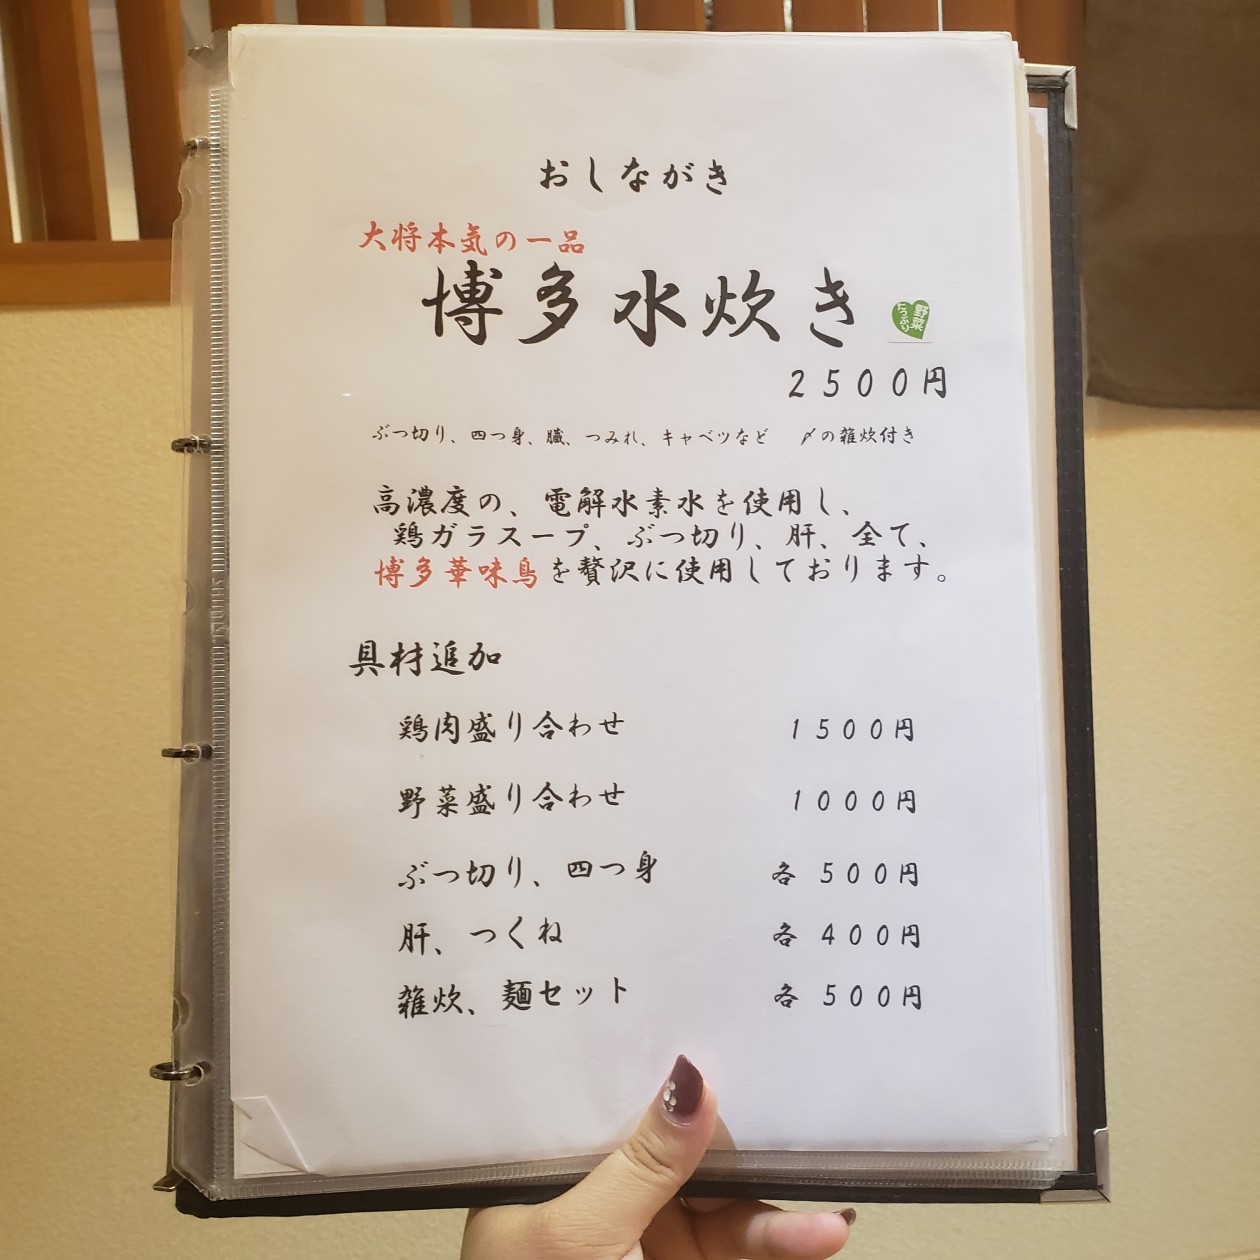 おしながき
大将本気の一品
博多水炊き
野菜
たっぷり
２５００円
ぶつ切り、四つ身、臓、つみれ、キャベツなど　〆の雑炊付き
高濃度の、電解水素水を使用し、
鶏ガラスープ、ぶつ切り、肝、全て、
博多華味鳥を贅沢に使用しております。
具材追加
鶏肉盛り合わせ　１５００円
野菜盛り合わせ　１０００円
ぶつ切り、四つ身　各 ５００円
肝、つくね　各 ４００円
雑炊、麺セット　各 ５００円